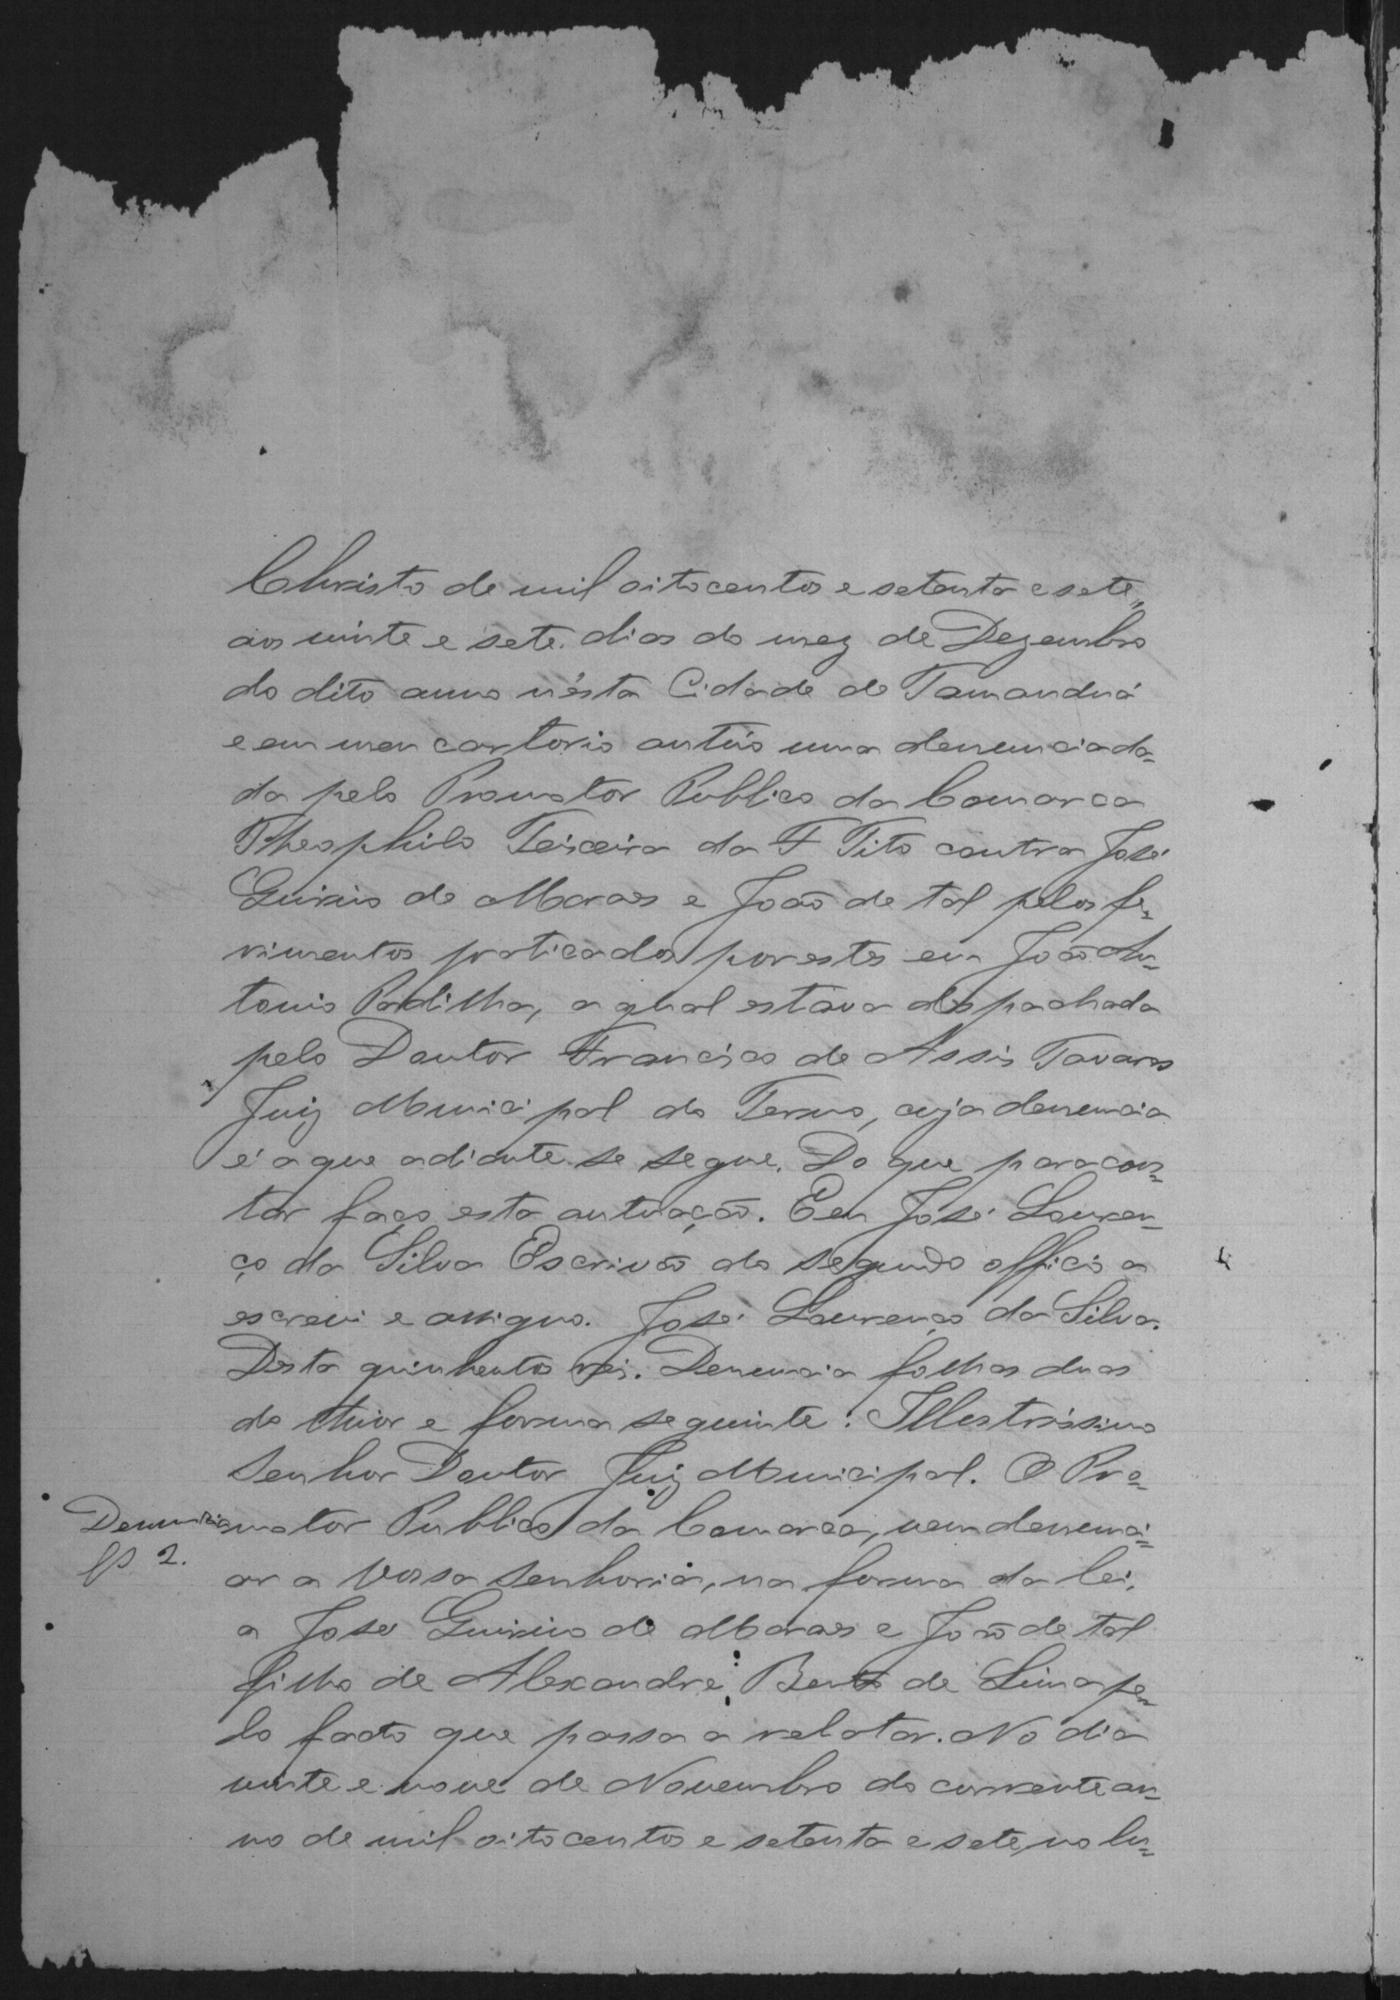 Christo de mil oitocentos e setenta e sete,
aos vinte e sete dias do mez de Dezembro
do dito anno n'ésta Cidade de Tamanduá
e em meu cartorio autúo uma denuncia da-
da pelo Promotor Publico da Comarca
Theophilo Teixeira da F Tito contra José
Quirino de Moraes e João de tal pelos fe-
rimentos praticados por estes em João An-
tonio Padilha, a qual estava despachada
pelo Doutor Francisco de Assis Tavares
Juiz Municipal do Termo, cuja denuncia
é a que adiante se segue. Do que para cons-
tar faço esta autuação. Eu José Louren-
ço da Silva Escrivão do segundo officio a
escrevi e assigno. José Lourenço da Silva.
Desta quinhentos reis. Denuncia folhas duas
do theor e forma seguinte: Illustrissimo
Senhor Doutor Juiz Municipal. O Pro-
Denuncia
fs 2.
motor Publico da Comarca, vem denunci-
ar a Vossa Senhoria, na forma da lei,
a José Quirino de Moraes e João de tal
filho de Alexandre Bento de Lima pe-
lo facto que passa a relatar. No dia
vinte e nove de Novembro do corrente an-
no de mil oitocentos e setenta e sete, no lu-